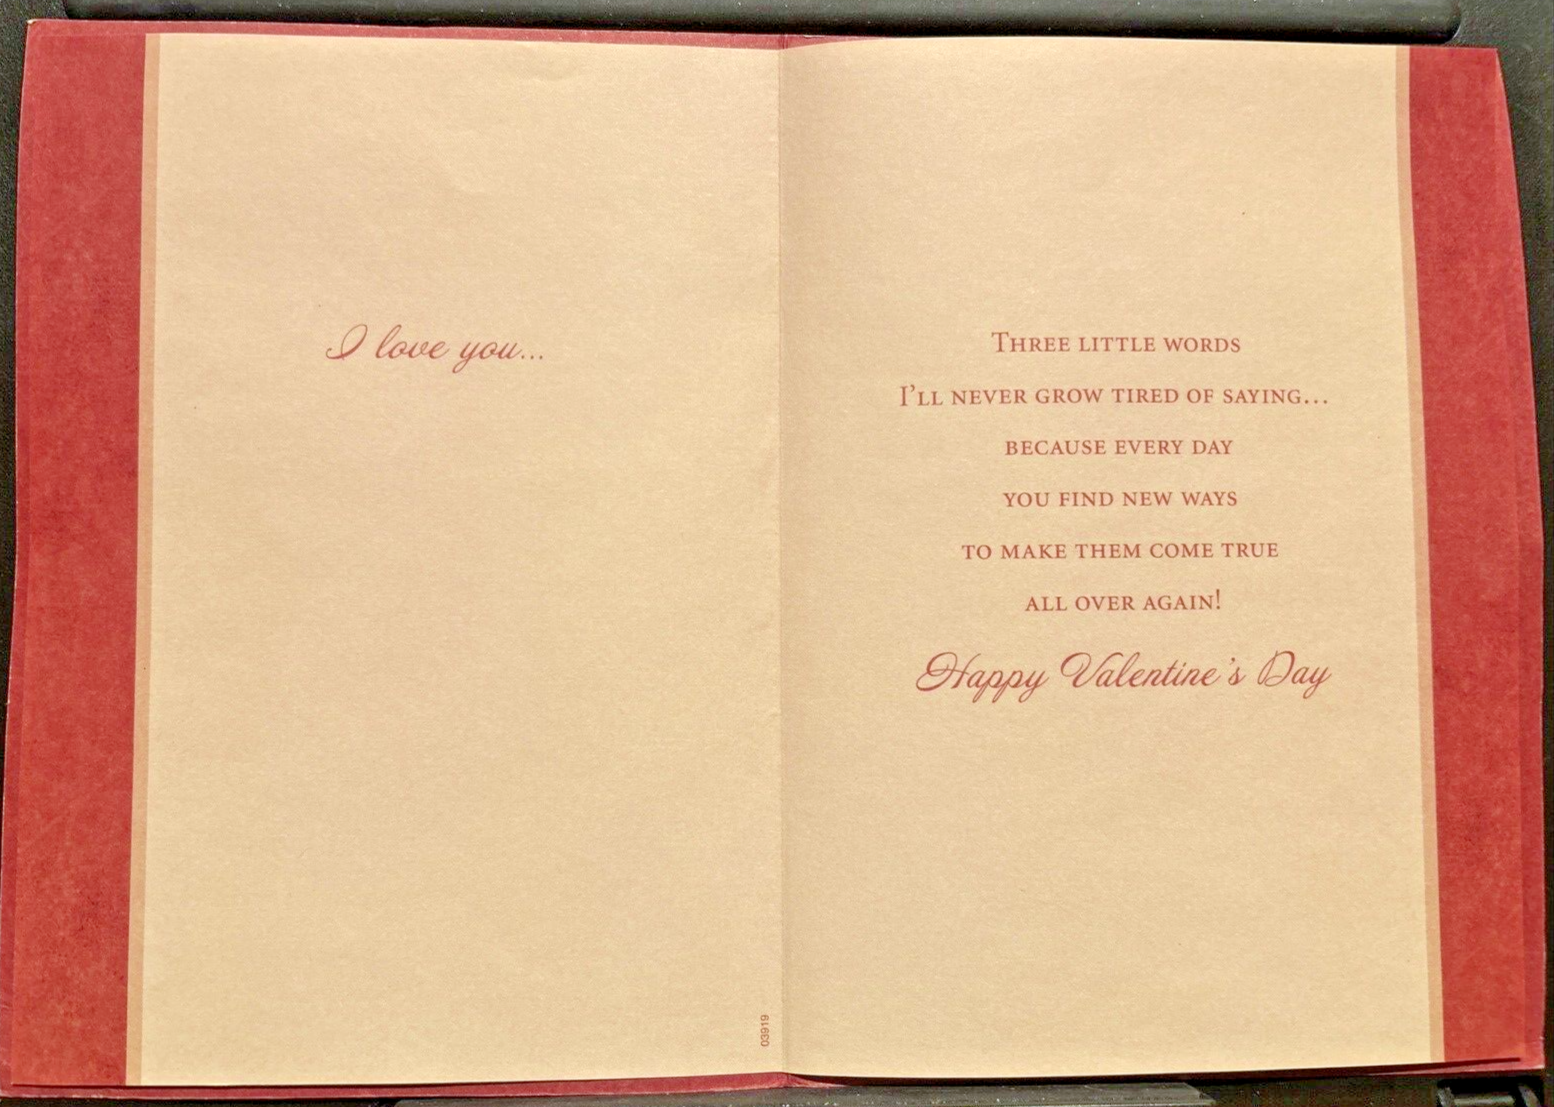 I love you...
03619
THREE LITTLE WORDS
I'LL NEVER GROW TIRED OF SAYING...
BECAUSE EVERY DAY
YOU FIND NEW WAYS
TO MAKE THEM COME TRUE
ALL OVER AGAIN!
Happy Valentine's Day